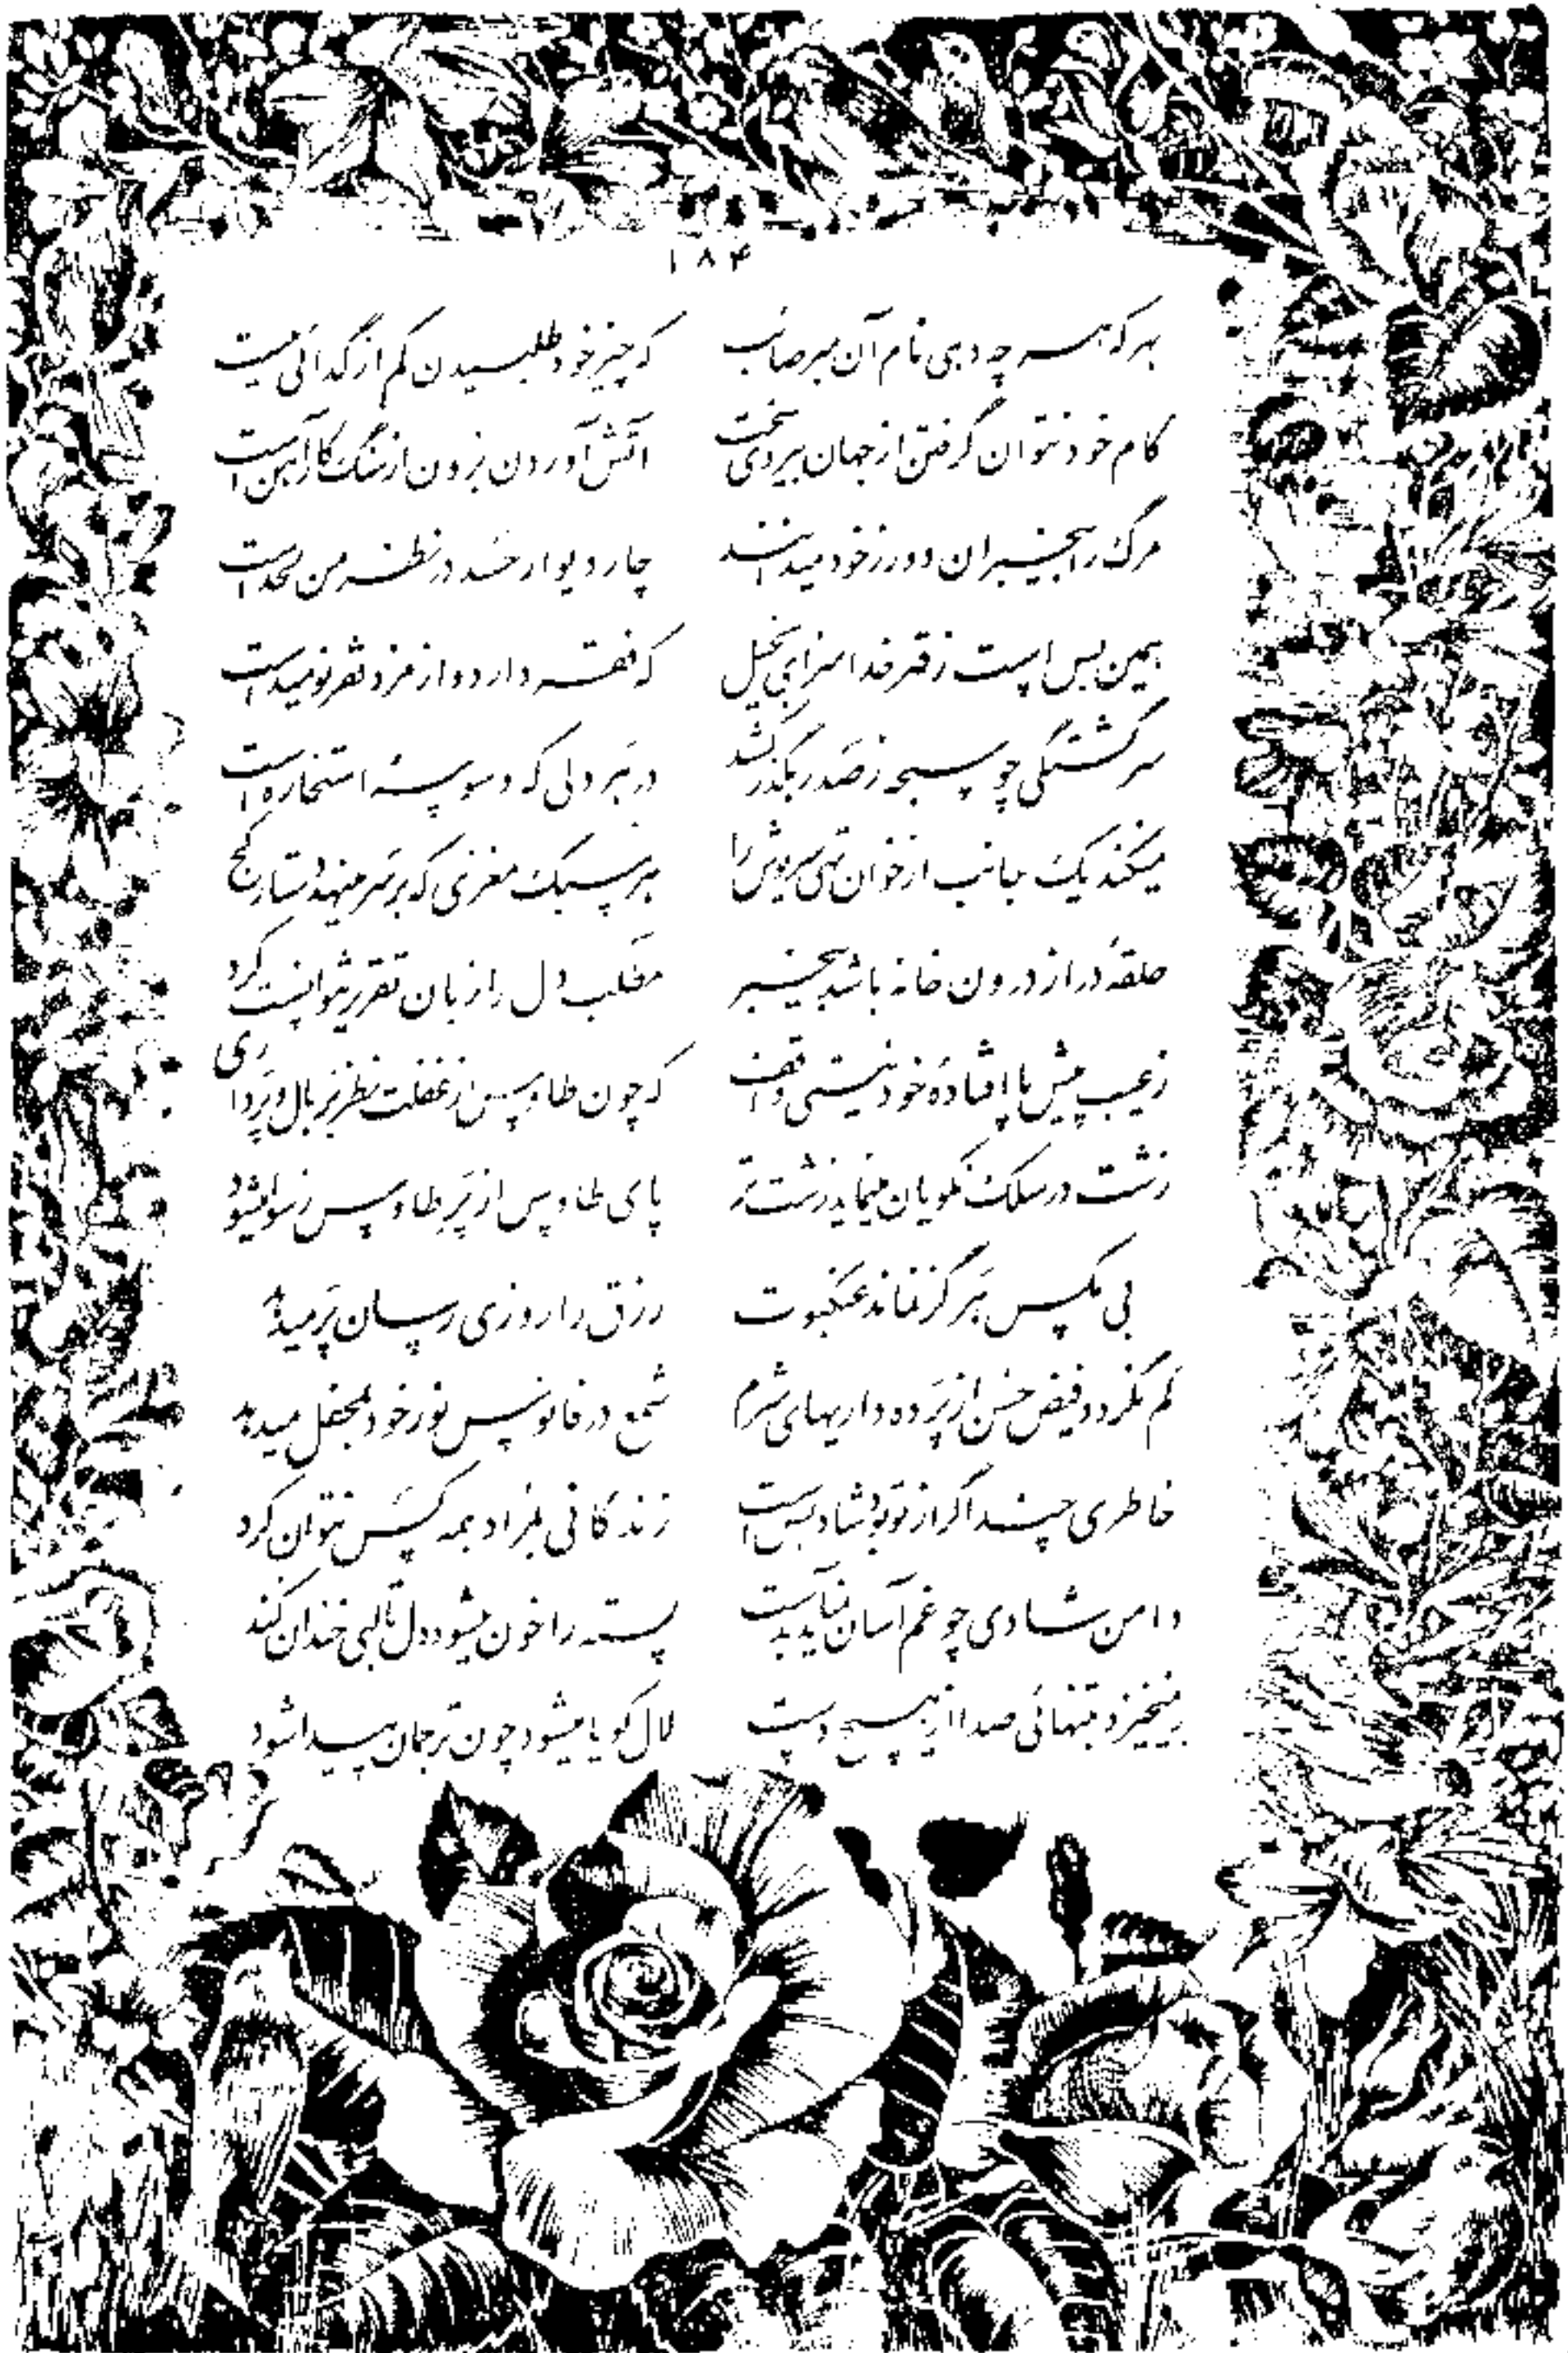 ۱۸۴
بهر که هر چه دهی نام آن مبر صائب که چیز خود طلبیدن کم از گدائی نیست
کام خود نتوان گرفتن از جهان بیروی سخت آتش آوردن برون از سنگ کار آهن است
مرگ را بیخبران دور ز خود میدانند چار دیوار جسد در نظر من لحد است
همین بس است ز قهر خدا سزای بخیل که فقر دارد و از مزد فقر نومید است
سرگشتگی چو سبحه ز صد رهگذر کشد در هر دلی که وسوسه استخاره است
میکند یک جانب از خوان تهی سرپوش را هر سبک مغزی که بر سر مینهد دستار کج
حلقه در از درون خانه باشد بیخبر مطلب دل را زبان تقریر نتوانست کرد
ز عیب پیش پا افتاده خود نیستی واقف که چون طاوس از غفلت نظر بر بال و پر داری
زشت در سلک نکویان مینماید زشت تر پای طاوس از پر طاوس رسوا میشود
بی مگس هرگز نماند عنکبوت رزق را روزی رسان پر میدهد
کم نگردد فیض حسن از پرده داریهای شرم شمع در فانوس نور خود بمحفل میدهد
خاطری چند اگر از تو بود شاد بس است زندگانی بمراد همه کس نتوان کرد
دامن شادی چو غم آسان نیاید بدست پسته را خون میشود دل تا لبی خندان کند
برنمیخیزد بتنهائی صدا از هیچ دست لال گویا میشود چون ترجمان پیدا شود